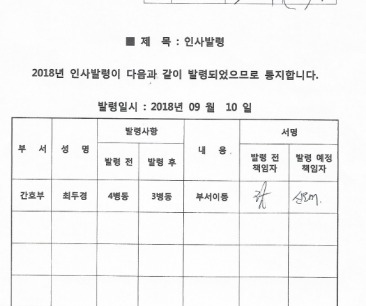 ■ 제 목 : 인사발령
2018년 인사발령이 다음과 같이 발령되었으므로 통지합니다.
발령일시 : 2018년 09 월 10 일
부 서 성 명 발령사항 내 용 서명
발령 전 발령 후 발령 전 책임자 발령 예정 책임자
간호부 최두경 4병동 3병동 부서이동